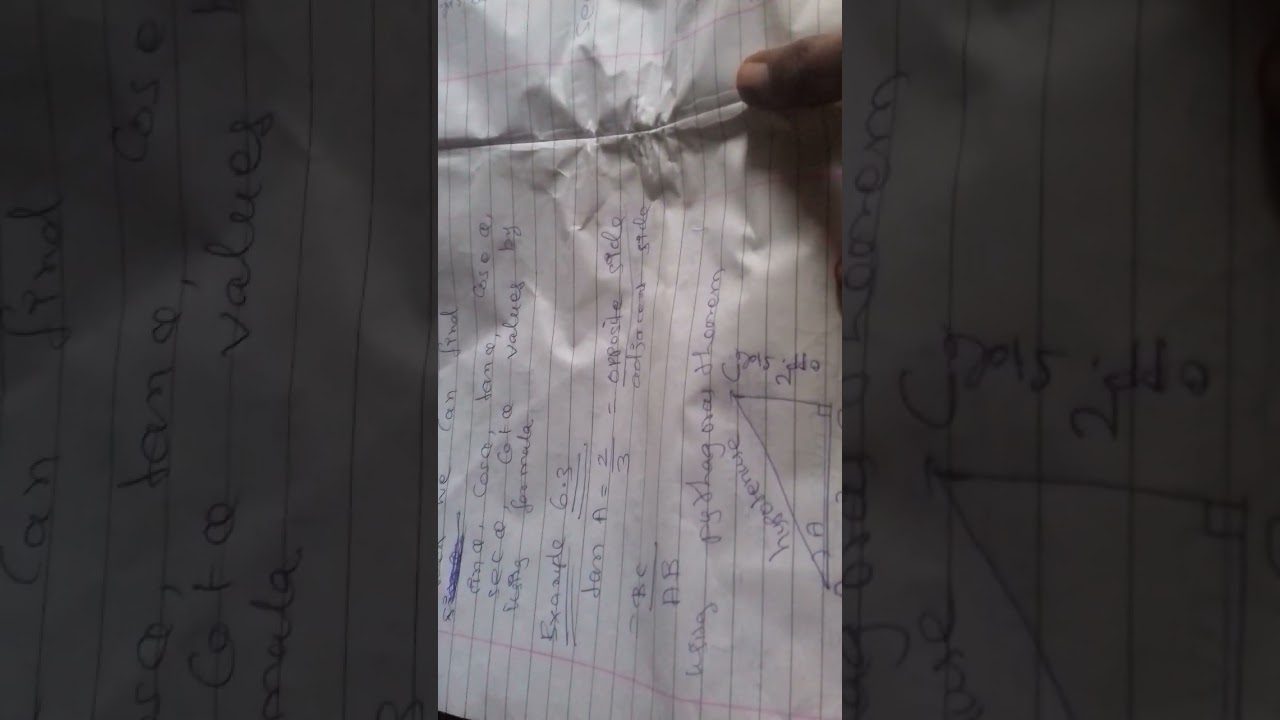 we can find
sinα, cosα, tanα, cosecα,
secα, cotα values by
using formula
Example 6.3
tan A = 2/3 = opposite side/adjacent side
= BC/AB
using pythagoras theorem
hypotenuse
C
2
A